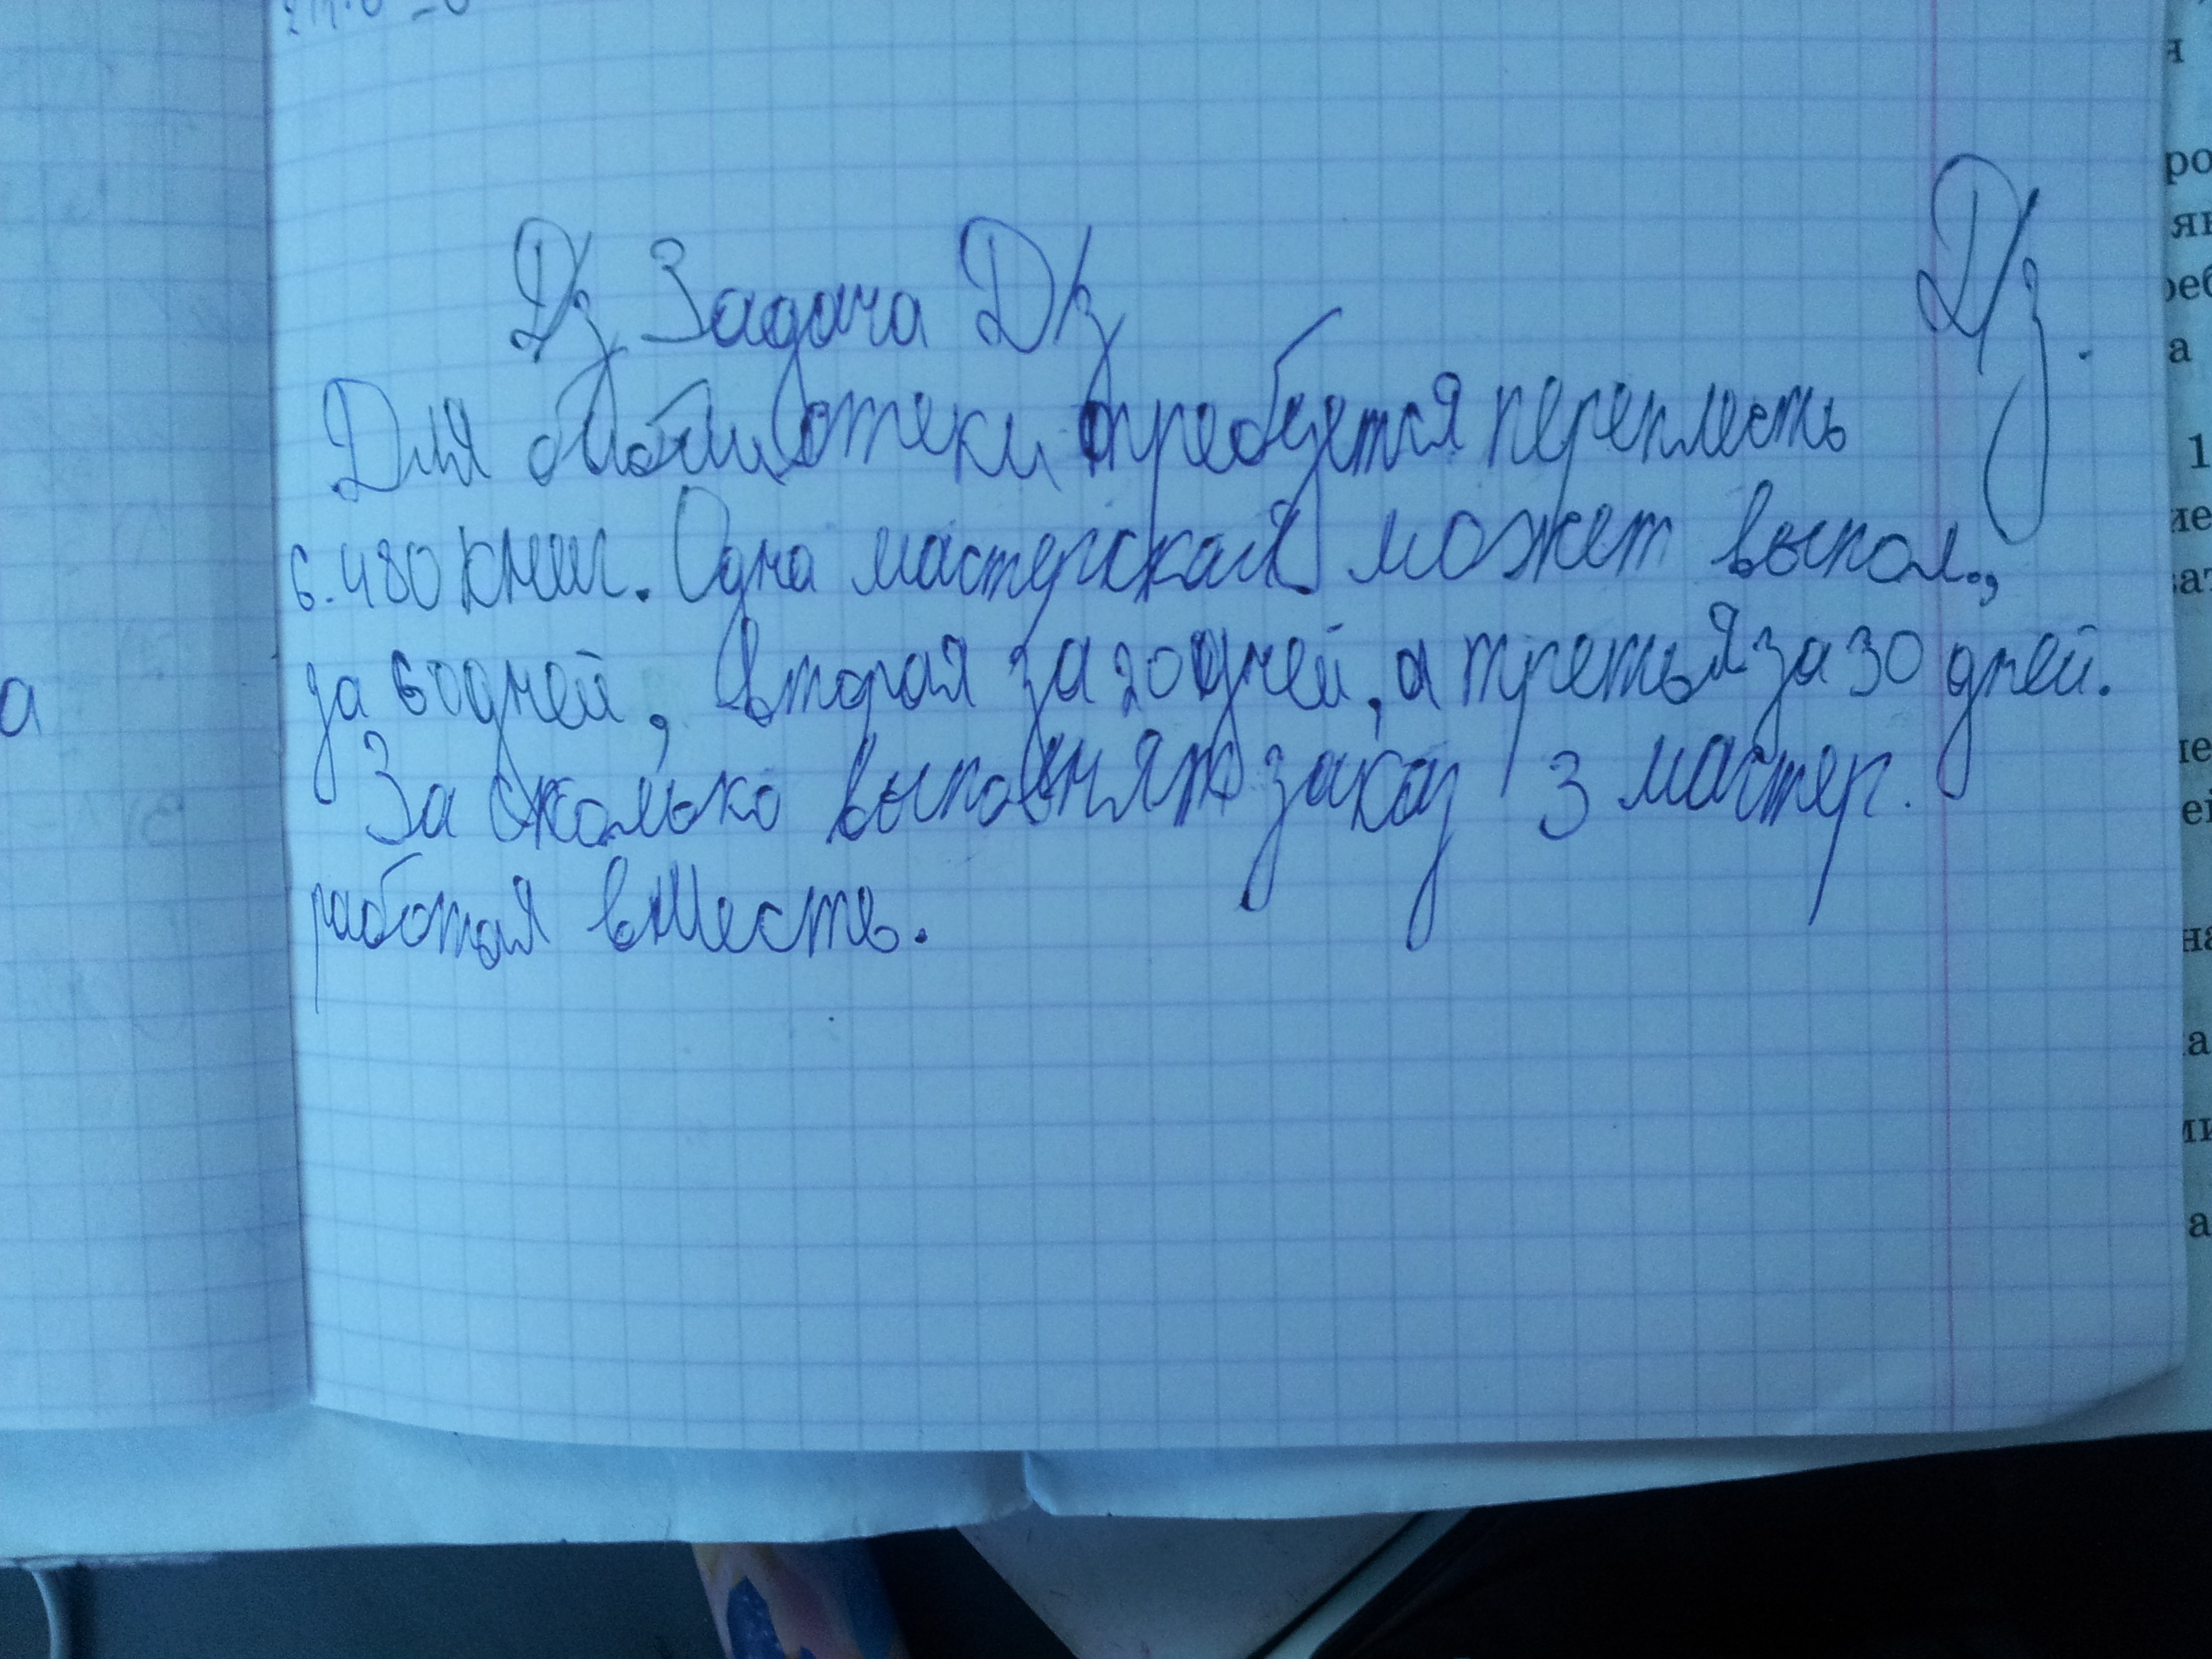 Д/з Задача Д/з
Д/з.
Для библиотеки требуется переплесть
6.480 книг. Одна мастерская может выпол.,
за 60 дней, вторая за 20 дней, а третья за 30 дней.
За сколько выполнят заказ 3 мастер.
работая вместе.
а